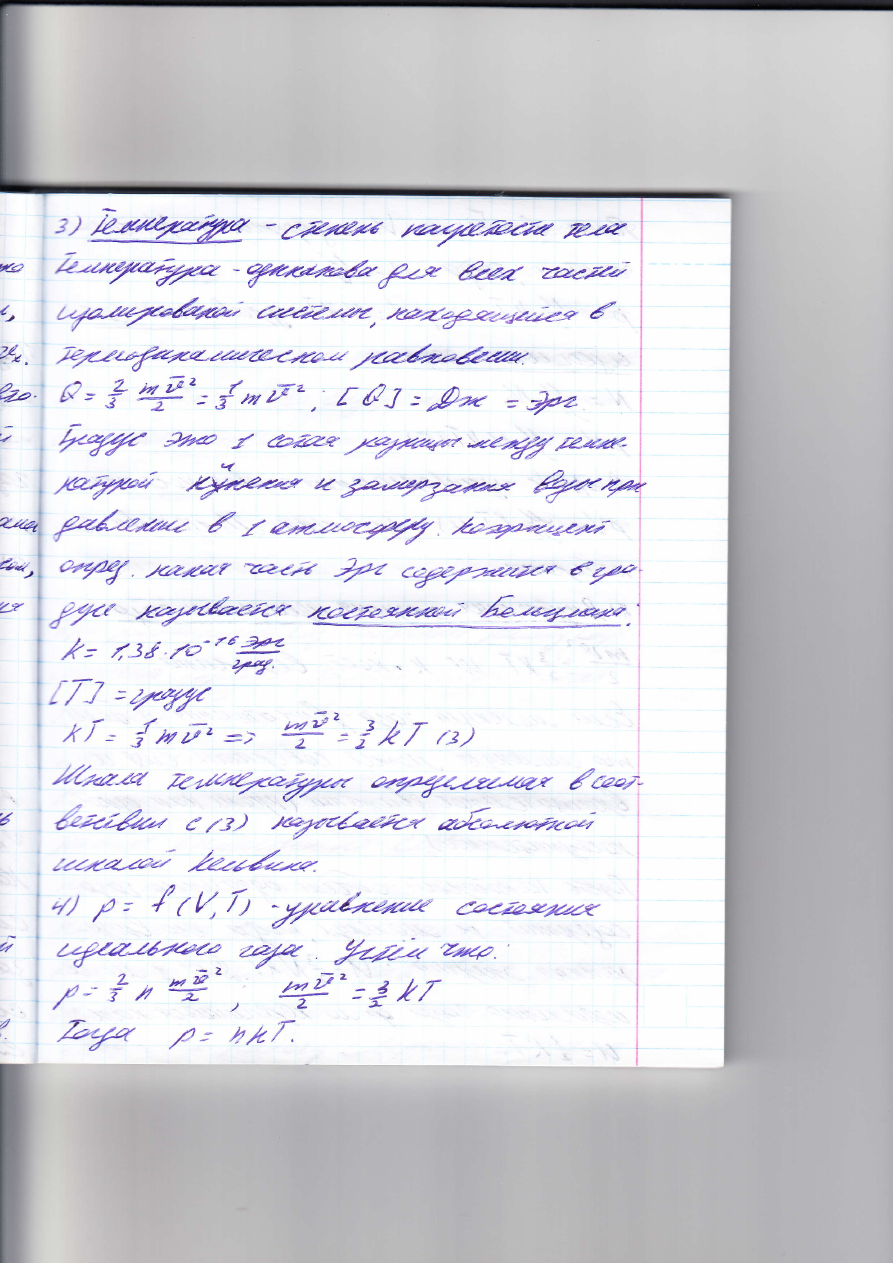 3) Температура - степень нагретости тела
Температура - одинакова для всех частей
изолированой системы, находящейся в
термодинамическом равновесии.
Q = 2/3 mv̅²/2 = 1/3 mv̅² ; [Q] = Дж = Эрг
Градус это 1 сотая разницы между темпе-
ратурой кипения и замерзания воды при
давлении в 1 атмосферу. Коэфициент
опред. какая часть Эрг содержится в гра-
дусе называется постоянной Больцмана:
k = 1,38·10⁻¹⁶ Эрг/град.
[T] = градус
kT = 1/3 mv̅² => mv̅²/2 = 3/2 kT (3)
Шкала температуры определимая в соот-
ветствии с (3) называется абсолютной
шкалой Кельвина.
4) p = f(V,T) - уравнение состояния
идеального газа. Учтём что:
p = 2/3 n mv̅²/2 ; mv̅²/2 = 3/2 kT
Тогда p = nkT.